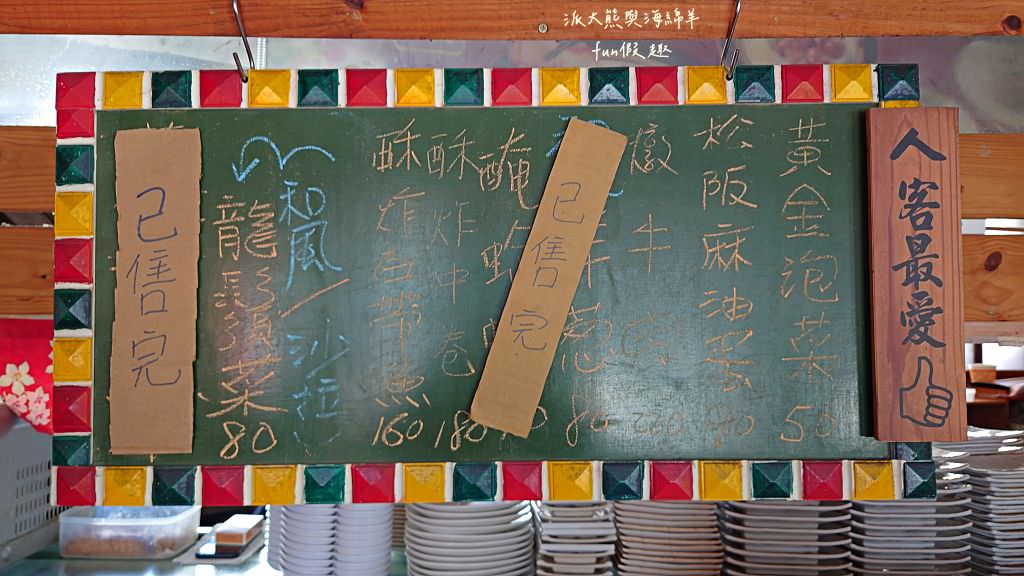 派大熊與海綿羊
fun假趣
人客最愛
黃金泡菜 50
松阪麻油 90
燉牛
80
已售完
醃
酥炸中卷 180
酥炸白帶魚 160
和風沙拉
龍鬚菜 80
已售完